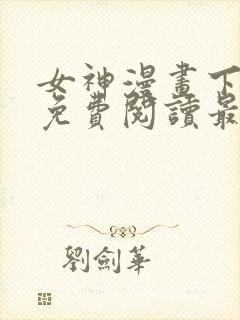 女神漫畫下
免費閱讀最
劉劍華